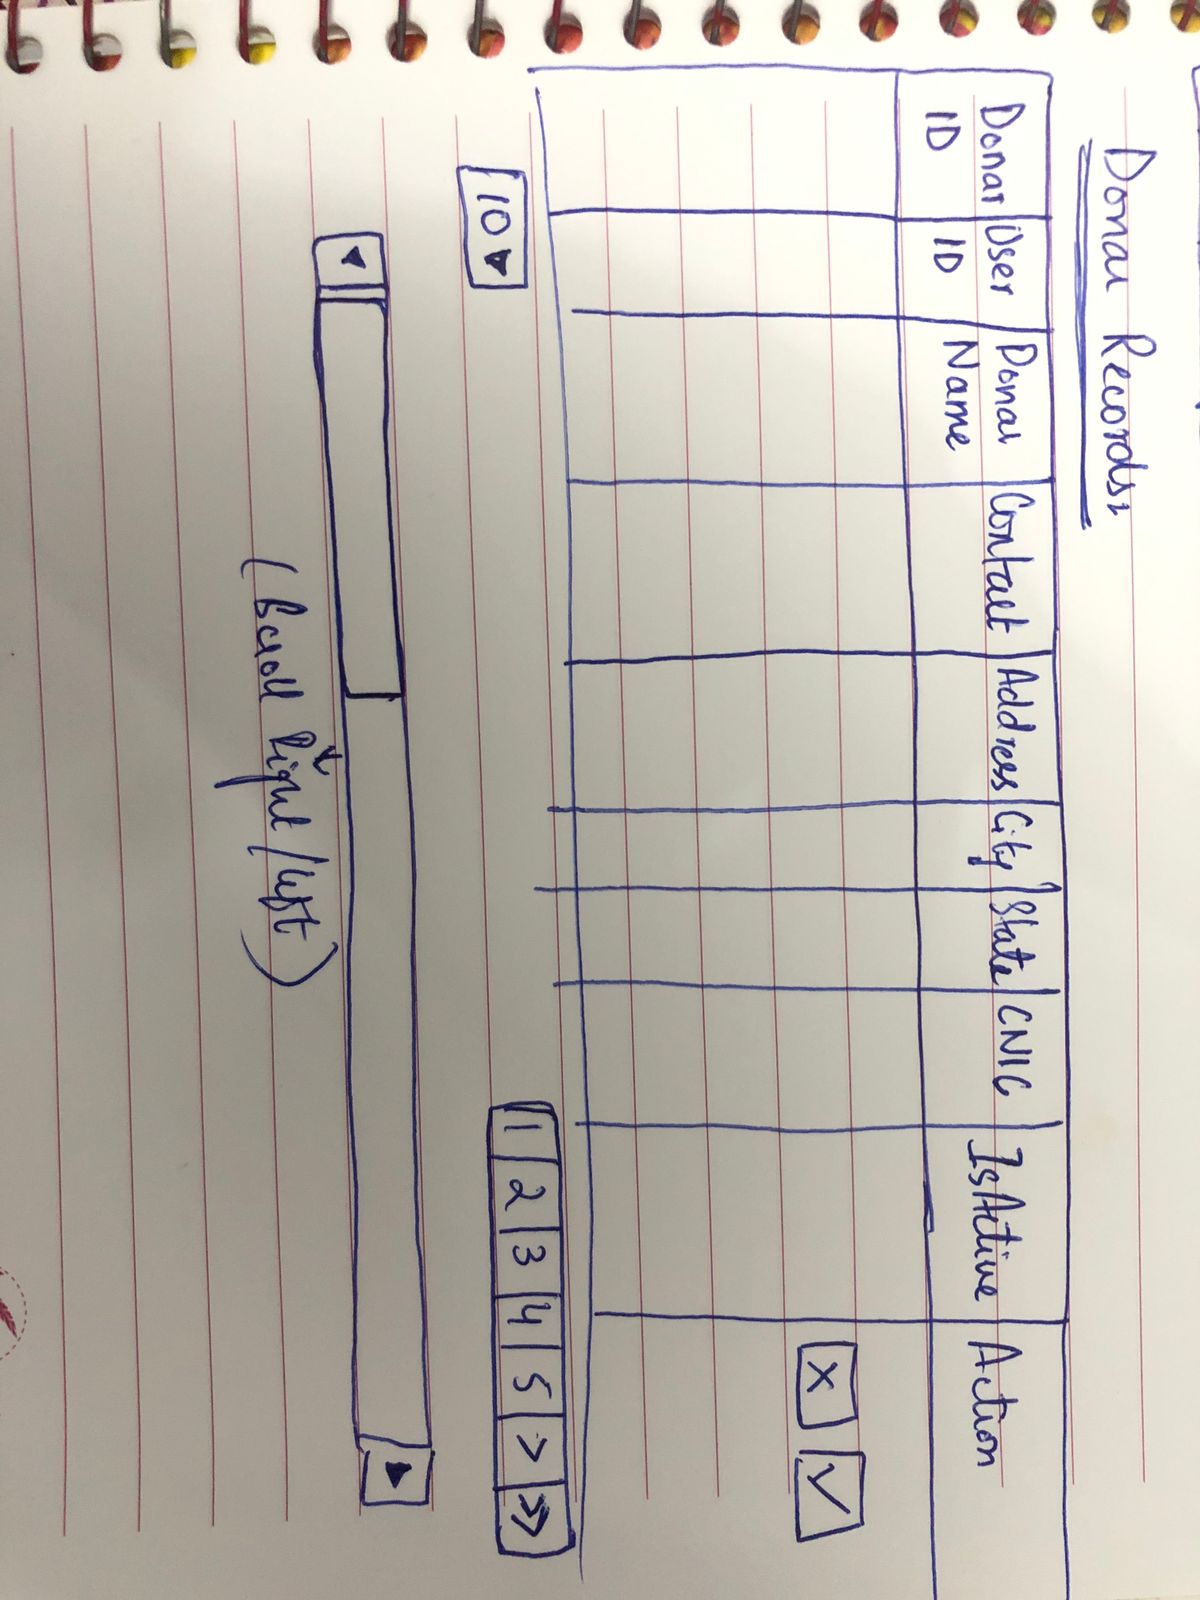 Donar Records:
Donar ID
User ID
Donar Name
Contact
Address
City
State
CNIC
IsActive
Action
x ✓
10 ▾
1 2 3 4 5 > >>
◀ ▶
(Scroll Right/left)